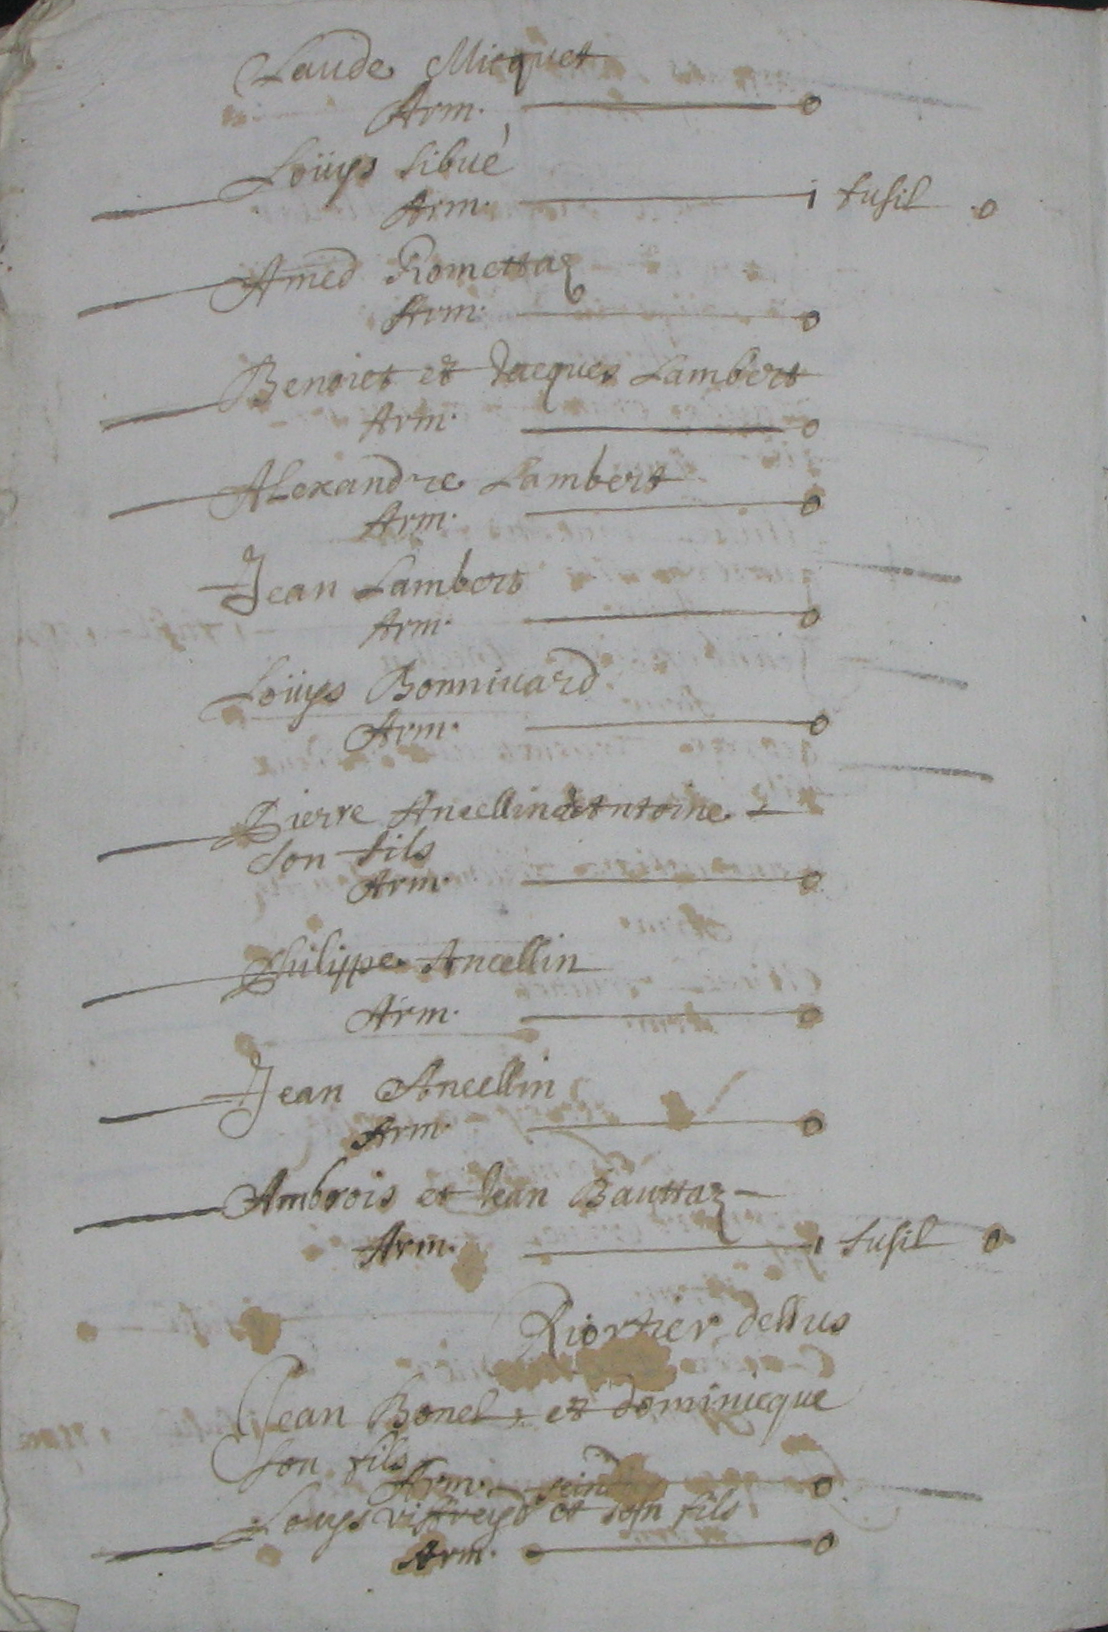 Laude Micquet
Arm. 0
Loüys Sibué
Arm. 1 fusil 0
AmedRomettaz
Arm. 0
Benoict et Jacques Lambert
Arm. 0
Alexandre Lambert
Arm. 0
Jean Lambert
Arm. 0
Loüys Bonniuard
Arm. 0
Pierre Ancellin et Antoine
son fils
Arm. 0
Philippe Ancellin
Arm. 0
Jean Ancellin
Arm. 0
Ambrois et Jean Bauttaz
Arm. 1 fusil 0
Riortier dessus
Jean Bonel, et dominicque
son fils
Arm. 0
Louys viffreyd et son fils
Arm. 0